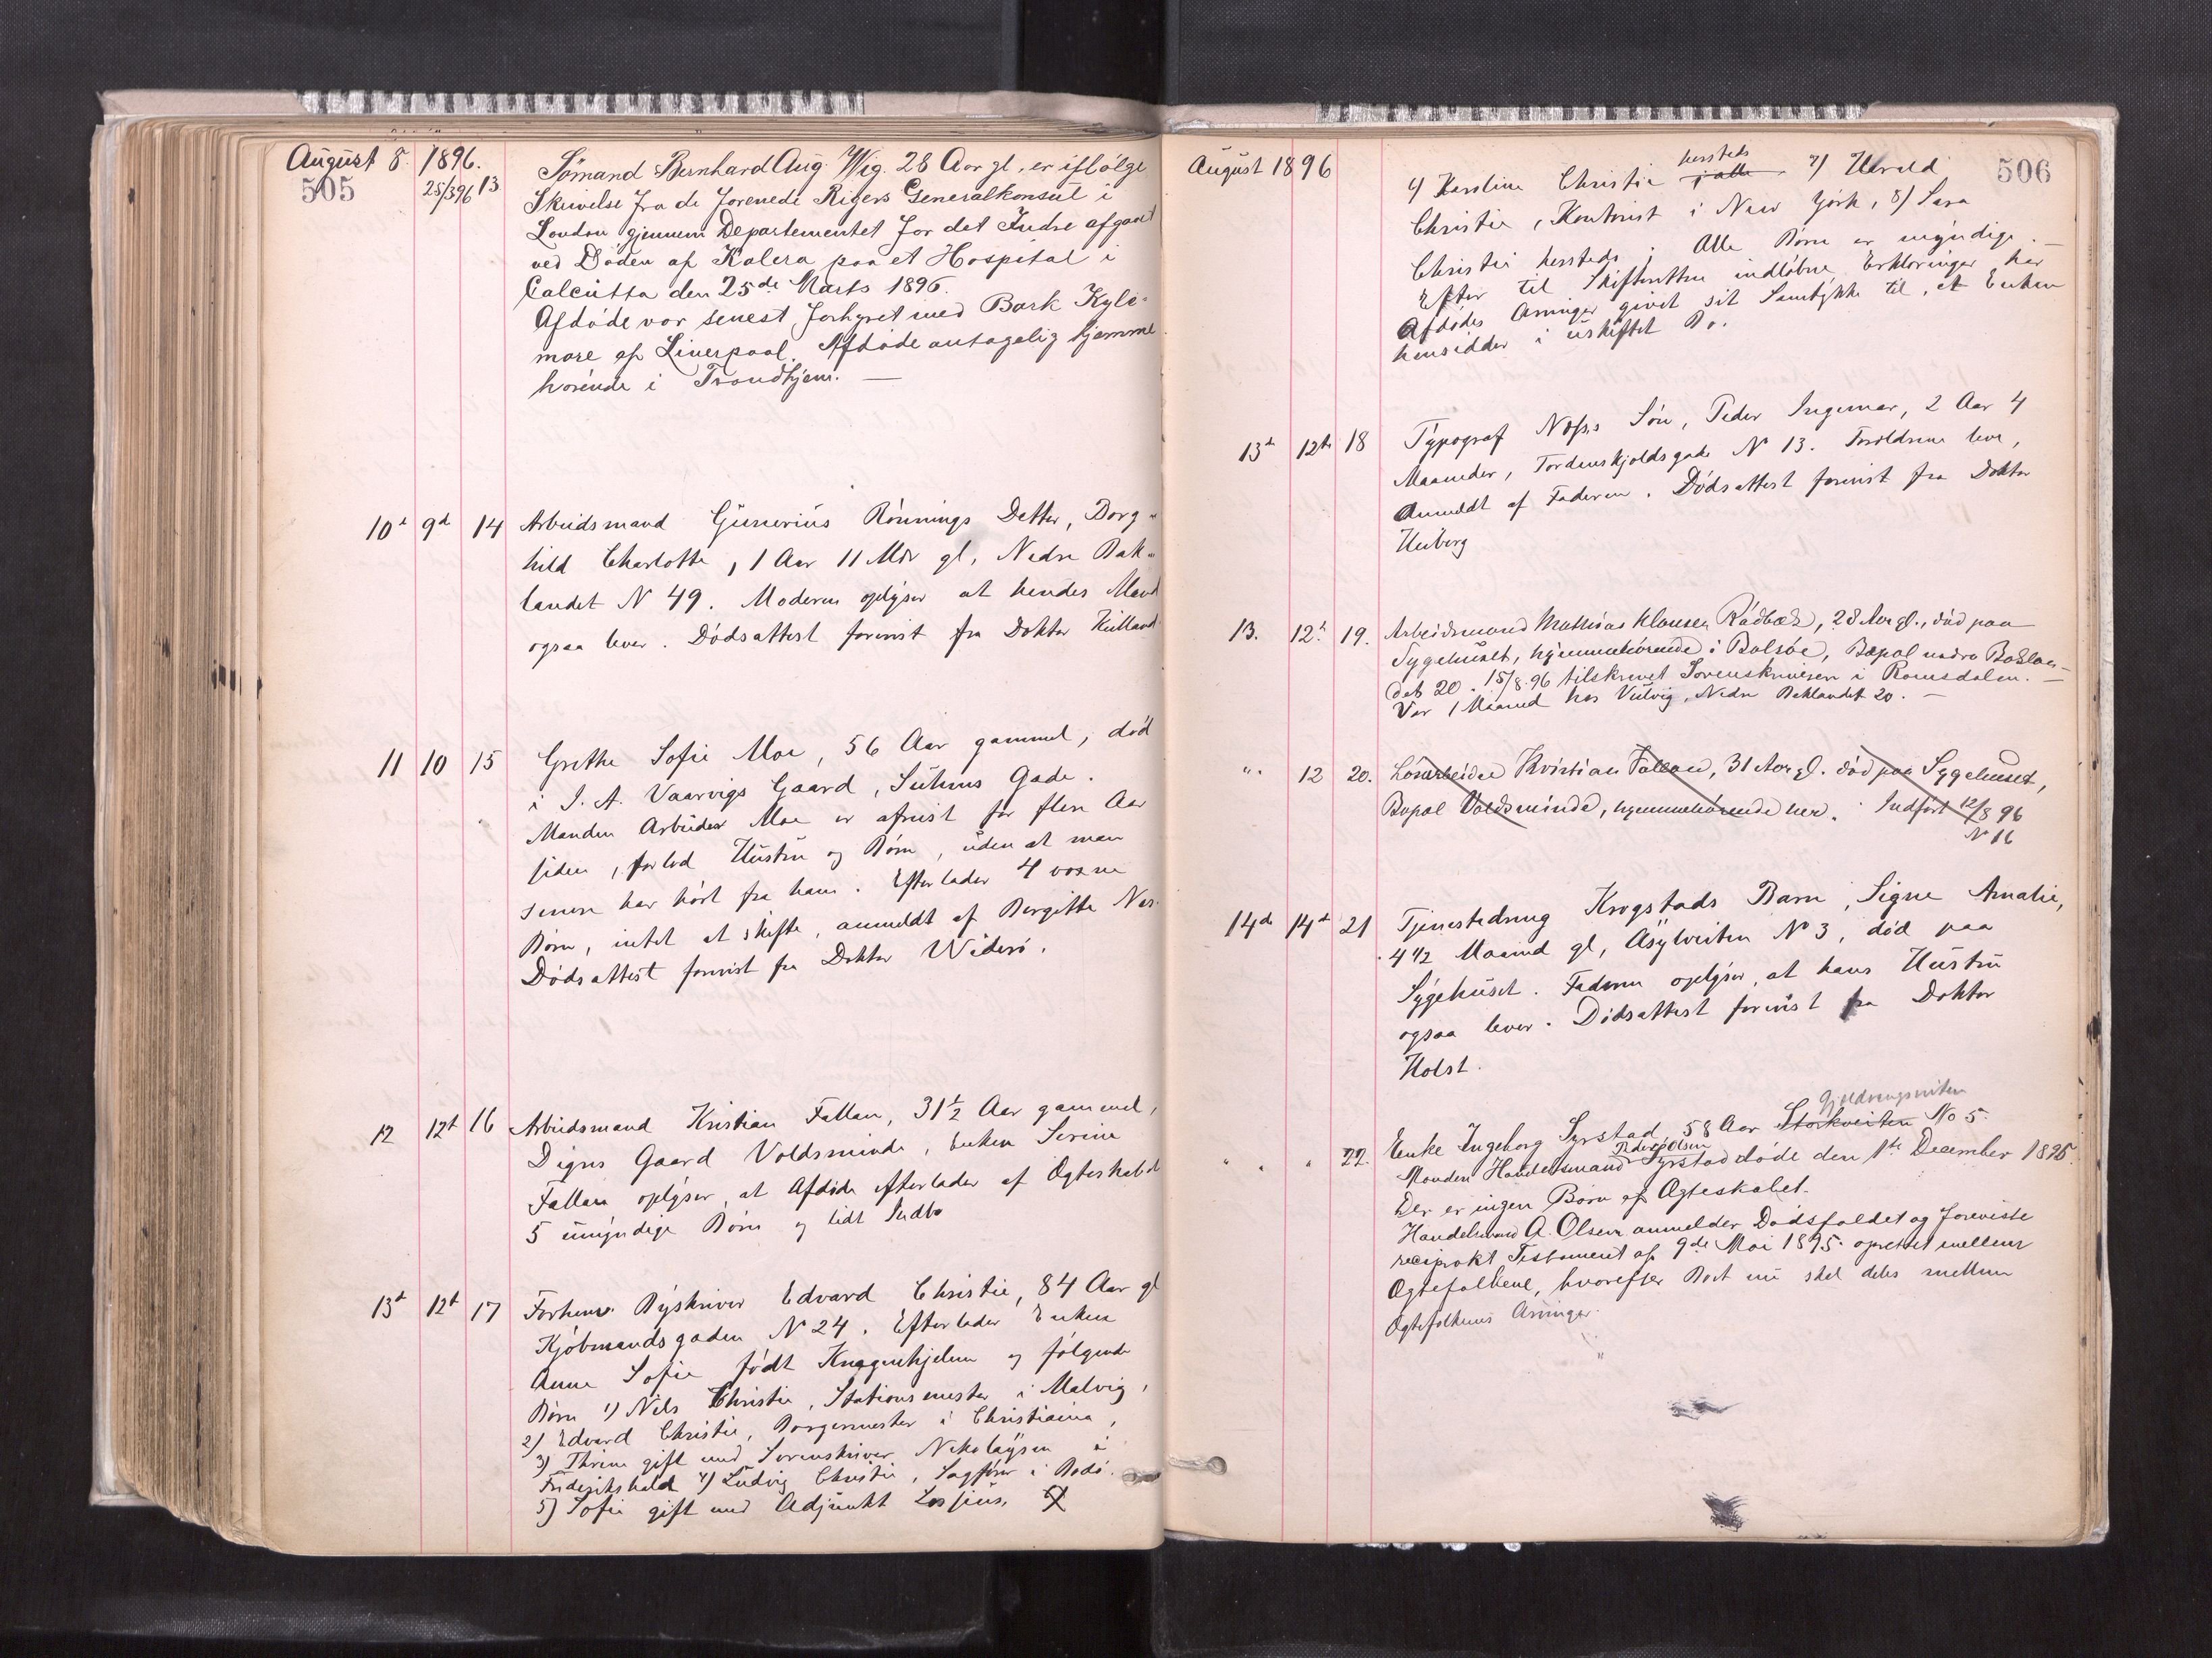 August 8. 1896.
505
25/3 96 13 Sömand Bernhard Aug. Wig. 28 Aar gl. er ifölge
Skrivelse fra de forenede Rigers Generalkonsul i
London gjennem Departementet for det Indre afgaaet
ved Døden af Kolera paa et Hospital i
Calcutta den 25de Marts 1896.
Afdöde var senest forhyret med Bark Kyle-
more af Liverpool. Afdöde antagelig hjemme
hørende i Trondhjem. —
10d 9d 14 Arbeidsmand Gunerius Rönnings Datter, Borg-
hild Charlotte, 1 Aar 11 Mdr gl, Nedre Bak-
landet N 49. Moderen oplyser at hendes Mand
ogsaa lever. Dödsattest forevist fra Doktor Killand
11 10 15 Grethe Sofie Moe, 56 Aar gammel, död
i I. A. Vaarvigs Gaard, Suhms Gade.
Manden Arbeider Moe er afreist for flere Aar
siden, forlod Hustru og Börn, uden at man
senere har hört fra ham. Efterlader 4 voxne
Börn, intet at skifte, anmeldt af Bergitte Nes.
Dödsattest forevist fra Doktor Widerö.
12 12t 16 Arbeidsmand Kristian Fallan, 31½ Aar gammel,
Digres Gaard Voldsminde, Enken Serine
Fallan oplyser, at Afdöde efterlader af Ægteskabet
5 umyndige Börn og lidt Indbo
13d 12t 17 Forhenv. Byskriver Edvard Christie, 84 Aar gl
Kjöbmandsgaden N 24. Efterlader Enken
Anne Sofie födt Knagenhjelm og fölgende
Börn 1) Nils Christie, Stationsmester i Malvig,
2) Edvard Christie, Borgermester i Christiania,
3) Thrine gift med Sorenskriver Nikolaysen i
Frederikshald 4) Ludvig Christie, Sagförer i Bodö.
5) Sofie gift med Adjunkt Lossius.
August 1896
506
hersteds
6) Karoline Christie i alle 7) Harald
Christie, Kontorist i New York, 8) Sara
Christie hersteds, Alle Börn er myndige. —
Efter til Skifteretten indløbne Erklæringer har
Afdödes Arvinger givet sit Samtykke til, at Enken
hensidder i uskiftet Bo.
13d 12te 18 Typograf Næss's Sön, Peder Ingemar, 2 Aar 4
Maaneder, Tordenskjoldsgade N 13. Forældrene leve,
Anmeldt af Faderen. Dödsattest forevist fra Doktor
Huiberg
13. 12t 19. Arbeidsmand Mathias Klausen Rödbæk, 28 Aar gl., död paa
Sygehuset, hjemmehörende i Bolsöe, Bopæl nedre Baklan-
det 20. 15/8.96 tilskrevet Sorenskriveren i Romsdalen. —
Var 1 Maaned hos Vulvig, Nedre Baklandet 20. —
". 12 20. Lösarbeider Kristian Fallan, 31 Aar gl. död paa Sygehuset,
Bopæl Voldsminde, hjemmehörende her. Indfört 12/8 96
N 16
14de 14de 21 Tjenestedreng Krogstads Barn, Signe Amalie,
4½ Maaned gl, Asylveiten N 3, död paa
Sygehuset. Faderen oplyser, at hans Hustru
ogsaa lever. Dödsattest forevist fra Doktor
Holst.
Gjeldvangsveiten
" " " 22. Enke Ingeborg Syrstad, 58 Aar Storkveiten No 5.
Peder Olsen
Manden Handelsmand Syrstad döde den 1ste December 1895.
Der er ingen Börn af Ægteskabet.
Handelsmand A. Olsen anmelder Dödsfaldet og foreviste
reciprokt Testament af 9de Mai 1895 oprettet mellem
Ægtefolkene, hvorefter Boet nu skal deles mellem
Ægtefolkenes Arvinger.